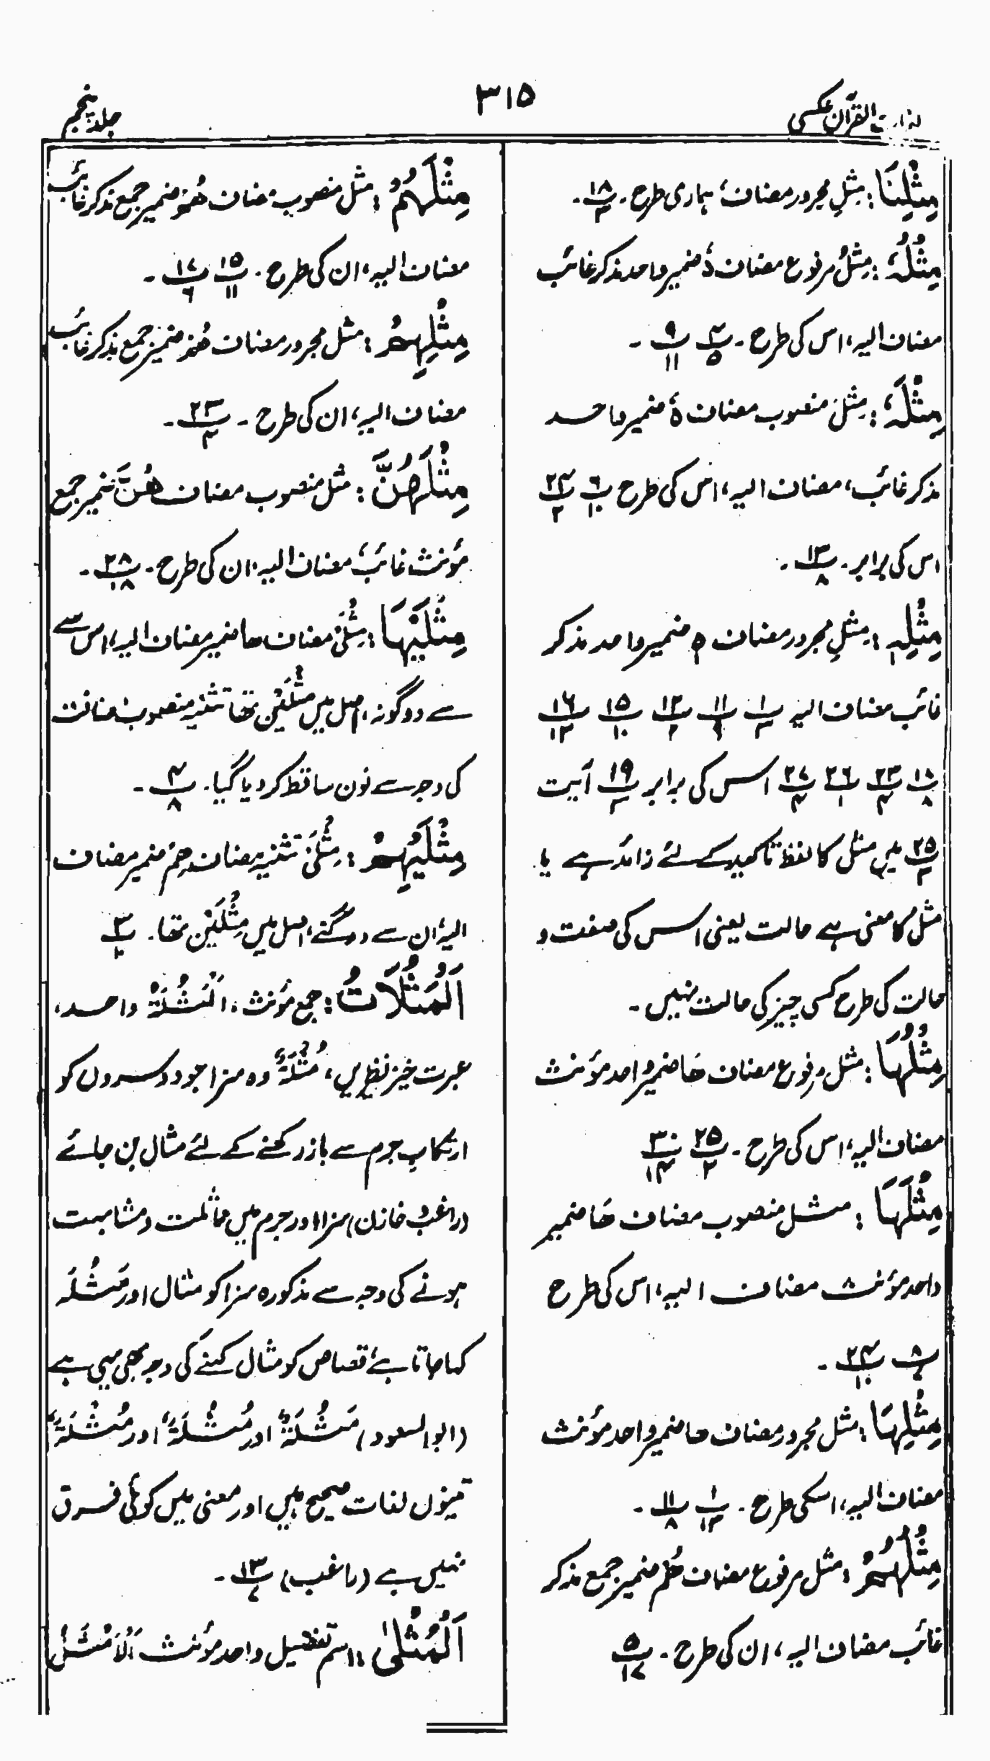 لغات القرآن عکسی
۳۱۵
جلد پنجم
مِثْلِنَا: مِثلِ مجرور مضاف، ہماری طرح۔ ۱۸/۳۔
مِثْلُهٗ: مِثلُ مرفوع مضاف ہٗ ضمیر واحد مذکر غائب
مضاف الیہ، اس کی طرح۔ ۳/۵ ۹/۱۱۔
مِثْلَهٗ: مِثلَ منصوب مضاف ہٗ ضمیر واحد
مذکر غائب، مضاف الیہ، اس کی طرح ۶/۱۰ ۲۴/۲
اس کی برابر۔ ۱۳/۸۔
مِثْلِهٖ: مِثلِ مجرور مضاف ہٖ ضمیر واحد مذکر
غائب مضاف الیہ ۱/۳ ۱۱/۹ ۱۲/۲ ۱۵/۱۰ ۱۶/۱۲
۱۸/۸ ۲۳/۴ ۲۶/۱ ۲۷/۴ اس کی برابر ۱۹/۳ آیت
۲۵/۳ میں مثل کا لفظ تاکید کے لئے زائد ہے یا
مثل کا معنی ہے حالت یعنی اس کی صفت و
حالت کی طرح کسی چیز کی حالت نہیں۔
مِثْلُهَا: مثل مرفوع مضاف ھَا ضمیر واحد مؤنث
مضاف الیہ، اس کی طرح۔ ۲۵/۲ ۳۰/۱۴
مِثْلَهَا: مثل منصوب مضاف ھَا ضمیر
واحد مؤنث مضاف الیہ، اس کی طرح
۸ ۲۴/۱۰۔
مِثْلِهَا: مثل مجرور مضاف ھا ضمیر واحد مؤنث
مضاف الیہ، اسکی طرح۔ ۱/۱۳ ۱۱/۸۔
مِثْلُهُمْ: مثل مرفوع مضاف ھُمْ ضمیر جمع مذکر
غائب مضاف الیہ، ان کی طرح۔ ۵/۱۷
مِثْلَهُمْ: مثل منصوب مضاف ھُمْ ضمیر جمع مذکر غائب
مضاف الیہ، ان کی طرح۔ ۱۵/۱۱ ۱۷/۶۔
مِثْلِهِمْ: مثل مجرور مضاف ھُمْ ضمیر جمع مذکر غائب
مضاف الیہ، ان کی طرح۔ ۲۳/۳۔
مِثْلَهُنَّ: مثل منصوب مضاف ھُنَّ ضمیر جمع
مؤنث غائب، مضاف الیہ، ان کی طرح۔ ۲۸/۱۸۔
مِثْلَيْهَا: مِثْلَیْ مضاف ھا ضمیر مضاف الیہ، اس سے
سے دوگونہ، اصل میں مِثْلَیْنِ تھا تثنیہ منصوب اضافت
کی وجہ سے نون ساقط کر دیا گیا۔ ۴/۸۔
مِثْلَيْهِمْ: مِثْلَیْ تثنیہ مضاف ھِمْ ضمیر مضاف
الیہ، ان سے دوگنے، اصل میں مِثْلَیْنِ تھا۔ ۳
اَلْمَثُلَاتُ: جمع مؤنث، اَلْمَثُلَةُ واحد،
عبرت خیز نظیریں، مُثْلَةٌ وہ سزا جو دوسروں کو
ارتکاب جرم سے باز رکھنے کے لئے مثال بن جائے
(راغب و خازن) سزا اور جرم میں مماثلت و مشابہت
ہونے کی وجہ سے مذکورہ سزا کو مثال اور مَثُلَه
کہا جاتا ہے، قصاص کو مثال کہنے کی وجہ بھی یہی ہے
(ابوالسعود) مَثُلَةٌ اور مُثُلَةٌ اور مُثْلَةٌ
تینوں لغات صحیح ہیں اور معنی میں کوئی فرق
نہیں ہے (راغب) ۱۳/۷۔
اَلْمُثْلٰی: اسم تفضیل واحد مؤنث اَلْاَمْثَلُ